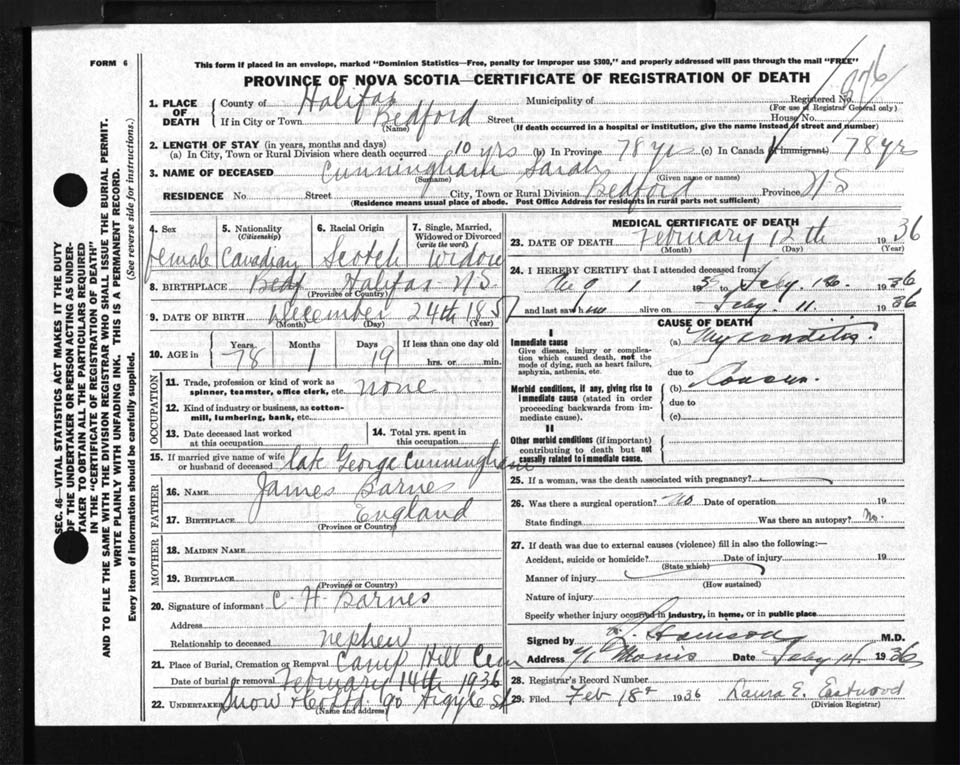 FORM 6
This form if placed in an envelope, marked "Dominion Statistics—Free, penalty for improper use $300," and properly addressed will pass through the mail "FREE"
PROVINCE OF NOVA SCOTIA—CERTIFICATE OF REGISTRATION OF DEATH
1. PLACE OF DEATH
County of Halifax Municipality of Registered No. 276
(For use of Registrar General only)
If in City or Town Bedford Street House No.
(Name) (If death occurred in a hospital or institution, give the name instead of street and number)
2. LENGTH OF STAY (in years, months and days)
(a) In City, Town or Rural Division where death occurred 10 yrs (b) In Province 78 yrs (c) In Canada (if immigrant) 78 yrs
3. NAME OF DECEASED Cunningham Sarah
(Surname) (Given name or names)
RESIDENCE No. Street City, Town or Rural Division Bedford Province N S
(Residence means usual place of abode. Post Office Address for residents in rural parts not sufficient)
4. Sex
female
5. Nationality (Citizenship)
Canadian
6. Racial Origin
Scotch
7. Single, Married, Widowed or Divorced (write the word)
Widow
8. BIRTHPLACE Bedf Halifax N S
(Province or Country)
9. DATE OF BIRTH December 24th 1857
(Month) (Day) (Year)
10. AGE in Years Months Days If less than one day old
78 1 19 hrs. or min.
OCCUPATION
11. Trade, profession or kind of work as spinner, teamster, office clerk, etc. none
12. Kind of industry or business, as cotton-mill, lumbering, bank, etc.
13. Date deceased last worked at this occupation
14. Total yrs. spent in this occupation
15. If married give name of wife or husband of deceased late George Cunningham
FATHER
16. NAME James Barnes
17. BIRTHPLACE England
(Province or Country)
MOTHER
18. MAIDEN NAME
19. BIRTHPLACE
(Province or Country)
20. Signature of informant C. H. Barnes
Address
Relationship to deceased nephew
21. Place of Burial, Cremation or Removal Camp Hill Cem
Date of burial or removal February 14th 1936
22. UNDERTAKER Snow & Co Ltd. 90 Argyle St
(Name and address)
MEDICAL CERTIFICATE OF DEATH
23. DATE OF DEATH February 12th 1936
(Month) (Day) (Year)
24. I HEREBY CERTIFY that I attended deceased from
Aug 1 1935 to Feby. 12. 1936
and last saw her alive on Feby. 11. 1936
CAUSE OF DEATH
I
Immediate cause
Give disease, injury or complication which caused death, not the mode of dying, such as heart failure, asphyxia, asthenia, etc.
(a) Myocarditis.
due to
Morbid conditions, if any, giving rise to immediate cause (stated in order proceeding backwards from immediate cause).
(b) Cancer.
due to
(c)
II
Other morbid conditions (if important) contributing to death but not causally related to immediate cause.
25. If a woman, was the death associated with pregnancy?
26. Was there a surgical operation? No Date of operation 19
State findings Was there an autopsy? No.
27. If death was due to external causes (violence) fill in also the following:—
Accident, suicide or homicide? Date of injury 19
(State which)
Manner of injury
(How sustained)
Nature of injury
Specify whether injury occurred in industry, in home, or in public place
Signed by M.D.
Address 71 Morris Date Feby 14. 1936
28. Registrar's Record Number
29. Filed Feb 18th 1936 Laura E. Eastwood
(Division Registrar)
SEC. 46—VITAL STATISTICS ACT MAKES IT THE DUTY
OF THE UNDERTAKER OR PERSON ACTING AS UNDER-
TAKER TO OBTAIN ALL THE PARTICULARS REQUIRED
IN THE "CERTIFICATE OF REGISTRATION OF DEATH"
AND TO FILE THE SAME WITH THE DIVISION REGISTRAR WHO SHALL ISSUE THE BURIAL PERMIT.
WRITE PLAINLY WITH UNFADING INK. THIS IS A PERMANENT RECORD.
Every item of information should be carefully supplied. (See reverse side for instructions.)